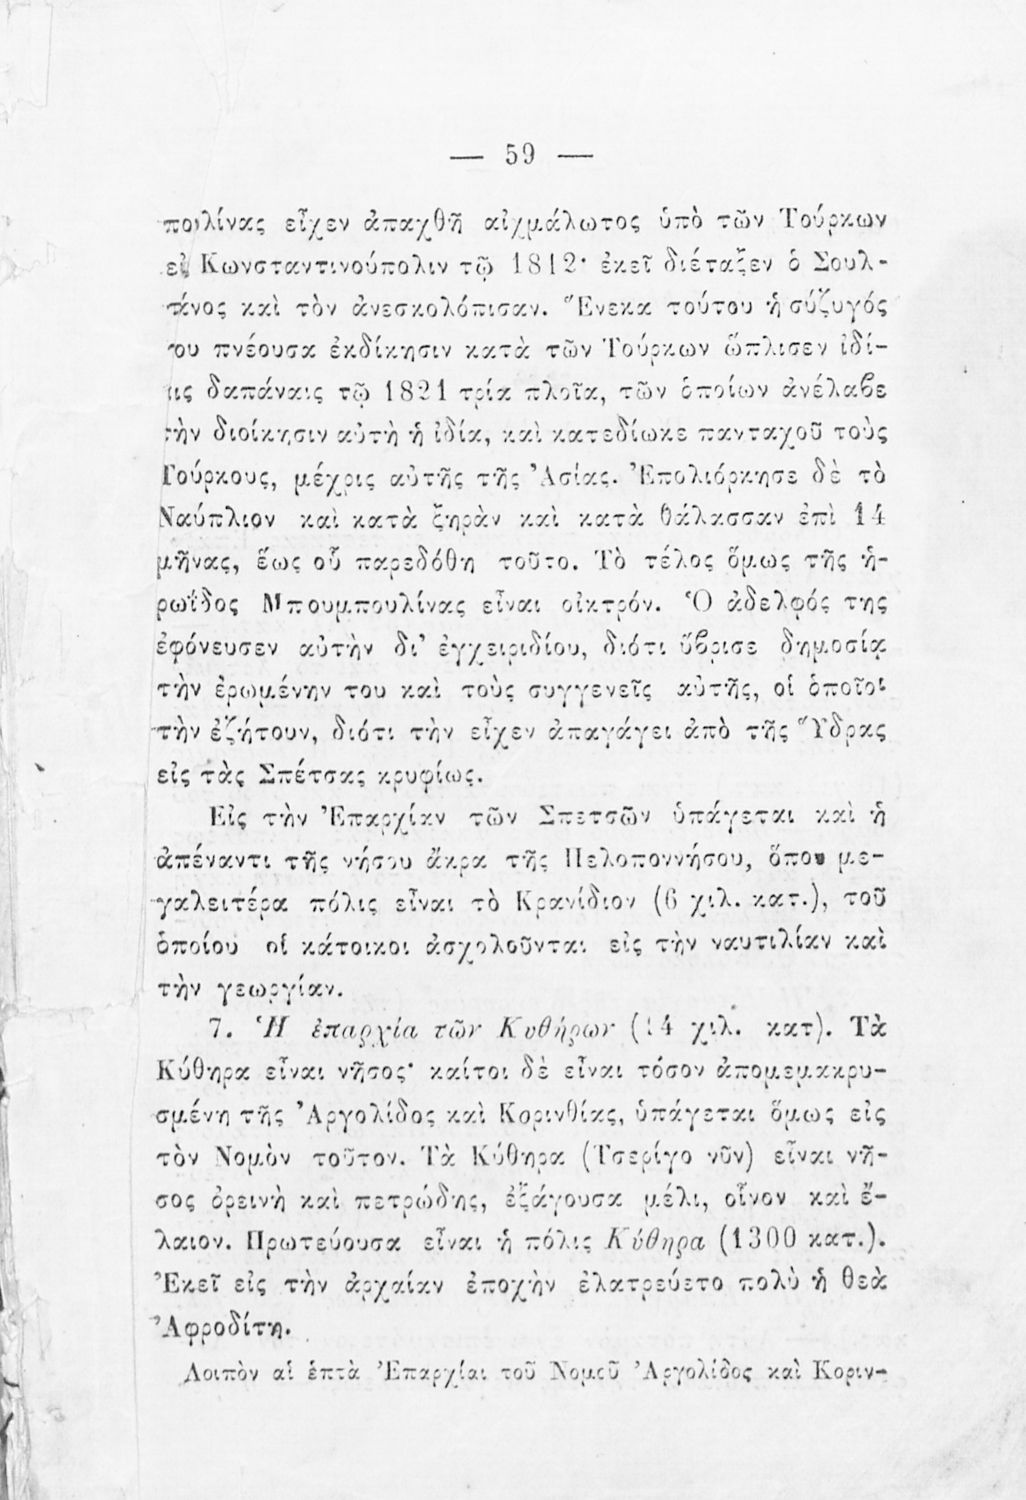 — 59 —
πουλίνας εἶχεν ἀπαχθῆ αἰχμάλωτος ὑπὸ τῶν Τούρκων
εἰς Κωνσταντινούπολιν τῷ 1812· ἐκεῖ διέταξεν ὁ Σουλ-
τάνος καὶ τὸν ἀνεσκολόπισαν. Ἕνεκα τούτου ἡ σύζυγός
του πνέουσα ἐκδίκησιν κατὰ τῶν Τούρκων ὥπλισεν ἰδί-
αις δαπάναις τῷ 1821 τρία πλοῖα, τῶν ὁποίων ἀνέλαβε
τὴν διοίκησιν αὐτὴ ἡ ἰδία, καὶ κατεδίωκε πανταχοῦ τοὺς
Τούρκους, μέχρις αὐτῆς τῆς Ἀσίας. Ἐπολιόρκησε δὲ τὸ
Ναύπλιον καὶ κατὰ ξηρὰν καὶ κατὰ θάλασσαν ἐπὶ 14
μῆνας, ἕως οὗ παρεδόθη τοῦτο. Τὸ τέλος ὅμως τῆς ἡ-
ρωΐδος Μπουμπουλίνας εἶναι οἰκτρόν. Ὁ ἀδελφός της
ἐφόνευσεν αὐτὴν δι' ἐγχειριδίου, διότι ὕβρισε δημοσίᾳ
τὴν ἐρωμένην του καὶ τοὺς συγγενεῖς αὐτῆς, οἱ ὁποῖοι
τὴν ἐζήτουν, διότι τὴν εἶχεν ἀπαγάγει ἀπὸ τῆς Ὕδρας
εἰς τὰς Σπέτσας κρυφίως.
Εἰς τὴν Ἐπαρχίαν τῶν Σπετσῶν ὑπάγεται καὶ ἡ
ἀπέναντι τῆς νήσου ἄκρα τῆς Πελοποννήσου, ὅπου με-
γαλειτέρα πόλις εἶναι τὸ Κρανίδιον (6 χιλ. κατ.), τοῦ
ὁποίου οἱ κάτοικοι ἀσχολοῦνται εἰς τὴν ναυτιλίαν καὶ
τὴν γεωργίαν.
7. Ἡ ἐπαρχία τῶν Κυθήρων (14 χιλ. κατ). Τὰ
Κύθηρα εἶναι νῆσος· καίτοι δὲ εἶναι τόσον ἀπομεμακρυ-
σμένη τῆς Ἀργολίδος καὶ Κορινθίας, ὑπάγεται ὅμως εἰς
τὸν Νομὸν τοῦτον. Τὰ Κύθηρα (Τσερίγο νῦν) εἶναι νῆ-
σος ὀρεινὴ καὶ πετρώδης, ἐξάγουσα μέλι, οἶνον καὶ ἔ-
λαιον. Πρωτεύουσα εἶναι ἡ πόλις Κύθηρα (1300 κατ.).
Ἐκεῖ εἰς τὴν ἀρχαίαν ἐποχὴν ἐλατρεύετο πολὺ ἡ θεὰ
Ἀφροδίτη.
Λοιπὸν αἱ ἑπτὰ Ἐπαρχίαι τοῦ Νομοῦ Ἀργολίδος καὶ Κοριν-